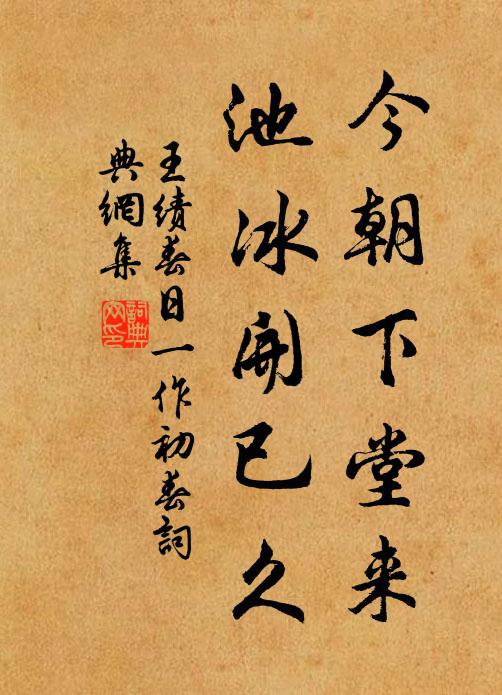 今朝下堂来
池冰開已久
王績春日一作初春詞
典網集
詞典网印